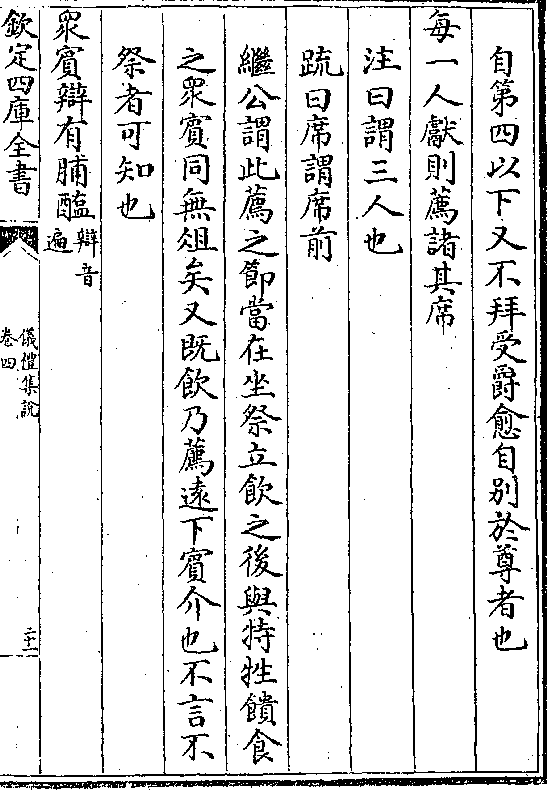 自第四以下又不拜受爵愈自别於尊者也
每一人獻則薦諸其席
注曰謂三人也
疏曰席謂席前
繼公謂此薦之節當在坐祭立飲之後與特牲饋食
之衆賓同無俎矣又既飲乃薦遠下賓介也不言不
祭者可知也
衆賓辯有脯醢辯音遍
欽定四庫全書
儀禮集說
卷四
二十一